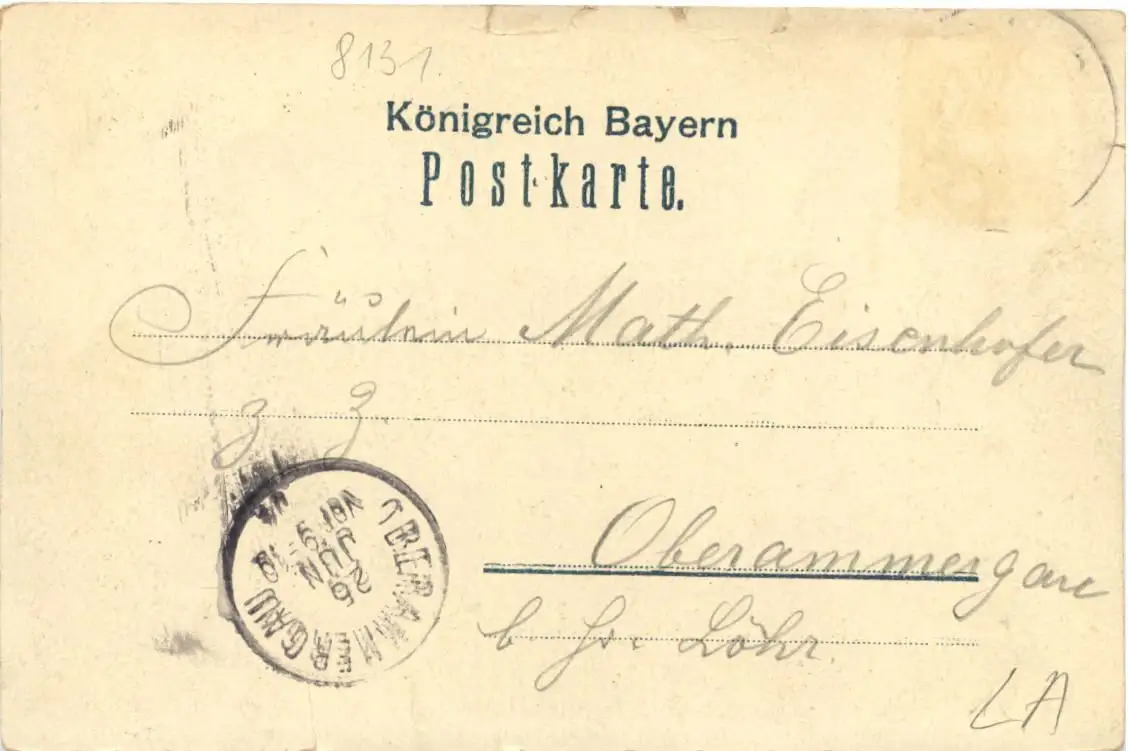 8131.
Königreich Bayern
Postkarte.
Fräulein Math. Eisenhofer
z. Z.
Oberammergau
b. Hr. Löhr.
OBERAMMERGAU
JUN
LA